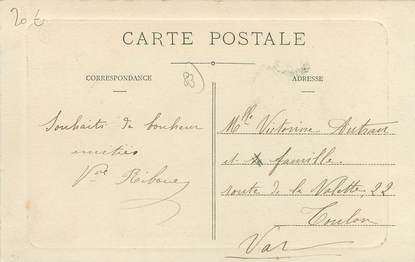 20 €
CARTE POSTALE
CORRESPONDANCE
83
ADRESSE
Souhaits de bonheur
Vve
Mlle Victorine
et famille
route de la Valette, 22
Toulon
Var